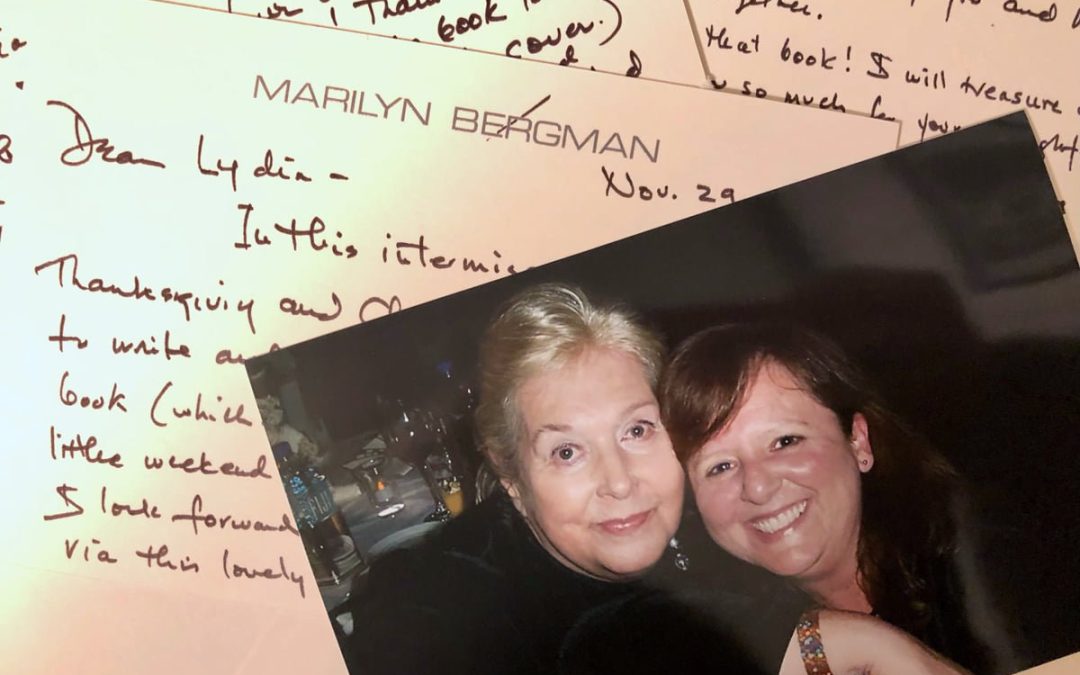 book
cover.)
and
that book! I will treasure
so much for
MARILYN BERGMAN
Nov. 29
Dear Lydia –
In this intermis
Thanksgiving and
to write
book (which
little weekend
I look forward
via this lovely